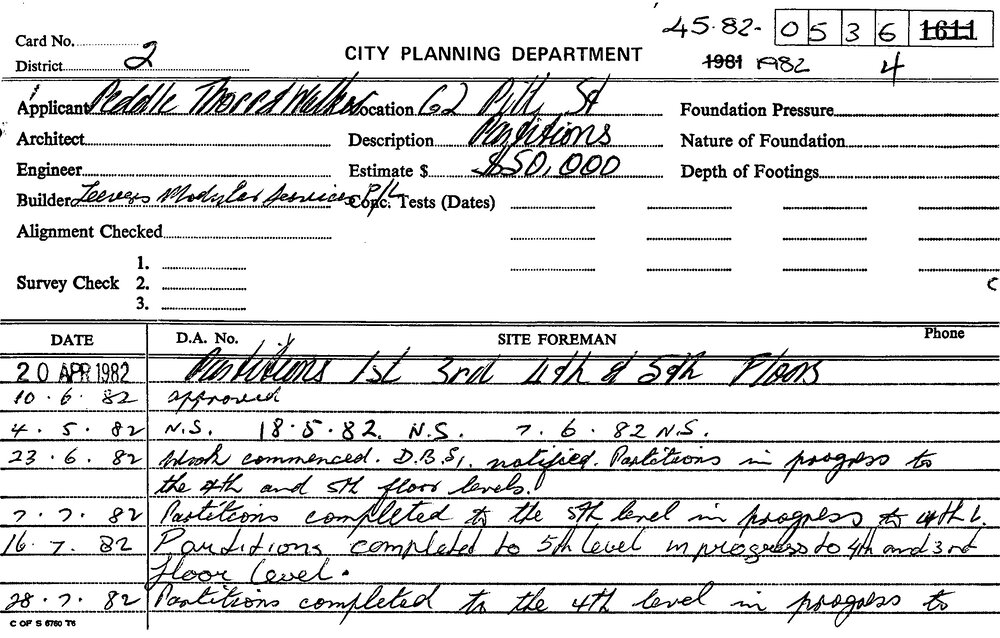 45·82- 0 5 3 6 1611
Card No.
District 2
CITY PLANNING DEPARTMENT
1981 1982 4
Applicant Peddle Thorp & Walker Location 62 Pitt St Foundation Pressure
Architect Description Partitions Nature of Foundation
Engineer Estimate $ $50,000 Depth of Footings
Builder Leevers Modular Services P/L Conc. Tests (Dates)
Alignment Checked
1.
Survey Check 2.
3.
DATE D.A. No. SITE FOREMAN Phone
20 APR 1982 Partitions 1st 3rd 4th & 5th Floors
10·6·82 approved
4·5·82 N.S. 18·5·82. N.S. 7·6·82 N.S.
23·6·82 Work commenced. D.B.S. notified. Partitions in progress to
the 4th and 5th floor levels.
7·7·82 Partitions completed to the 5th level in progress to 4th L.
16·7·82 Partitions completed to 5th level in progress to 4th and 3rd
floor level.
28·7·82 Partitions completed to the 4th level in progress to
C OF S 6760 T6